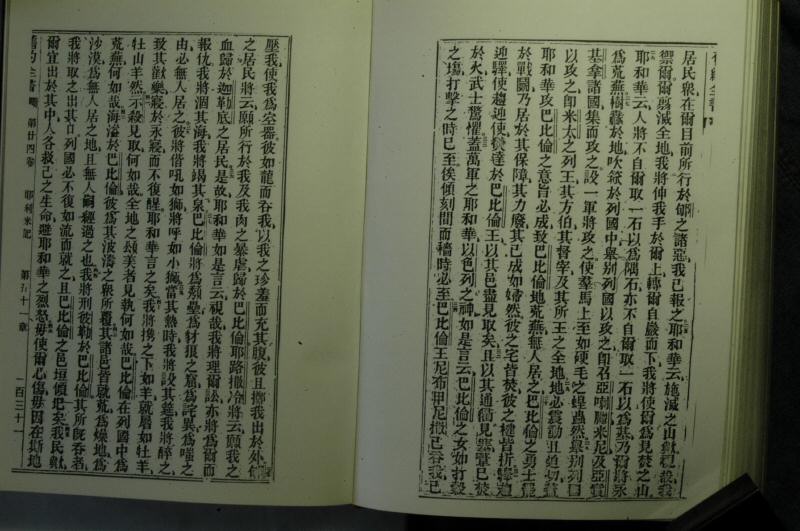 居民衆在爾目前所行於郇之諸惡我已報之耶和華云施滅之山
爾翦滅全地我將伸我手於爾上轉爾自巖而下我將使爾爲見焚之山
耶和華云人將不自爾取一石以爲隅石亦不自爾取一石以爲基乃爾將永
爲荒蕪樹纛於地吹於列國中舉别列國以攻之卽召亞米尼及亞
基拿諸國集而攻之設一軍將攻之使羣馬上至如硬毛之蝗蟲然舉别列國
以攻之卽米太之列王其方伯其督宰及其所王之全地地必震動且迫切蓋
耶和華攻巴比倫之意旨必成致巴比倫地荒蕪無人居之巴比倫之勇士罷
於戰鬪乃居於其保障其力廢其已成如婦然彼之宅皆焚彼之楗皆折
迎驛使趨迎使達於巴比倫王以其邑盡見取矣且以其通見塞葦已焚
於火武士驚懼蓋萬軍之耶和華以色列之神如是言云巴比倫之女如打穀
之塲打擊之時已至俟傾刻間而穡時必至巴比倫王尼布甲尼撒已吞我已
壓我使我爲空器彼如龍而吞我以我之珍羞而充其腹彼且擲我出於外郇
之居民將云願所行於我及我肉之暴虐歸於巴比倫耶路撒冷將云願我之
血歸於迦勒底之居民是故耶和華如是言云視哉我將理爾訟亦將爲爾而
報仇我將涸其海我將竭其泉巴比倫將爲頽壘爲豺狼之窟爲詫異爲嗤之
由必無人居之彼將偕吼如獅將呼如小獅當其熱時我將設其筵我將醉之
致其歡樂寢於永寢而不復醒耶和華言之矣我將攜之下如羊就屠如牡羊
牡山羊然示殺見取何如哉全地之頌美者見執何如哉巴比倫在列國中爲
荒蕪何如哉海溢於巴比倫彼爲其波濤之衆所覆其諸邑皆就荒爲燥地爲
沙漠爲無人居之地且無人嗣經過之也我將刑彼勒於巴比倫其所旣吞者
我將取之出其口列國必不復如流而就之且巴比倫之邑垣傾圯矣我民歟
爾宜出於其中人各救己之生命避耶和華之烈怒毋使爾心傷毋因在斯地
舊約全書 第廿四卷 耶利米記 第五十一章 一百三十一